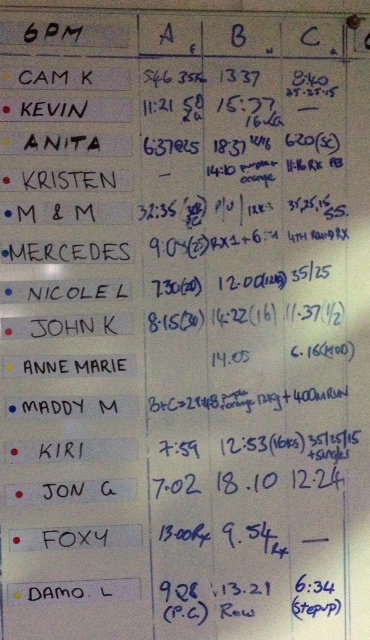 6PM A B C
CAM K 5:46 35K 13 37 8:40
25-25-15
KEVIN 11:21 15:37 —
16KG
ANITA 6:37@25 18:37 6:20(SC)
KRISTEN — 14:10 purple+ 11:16 RX PB
orange
M & M 32:35 P/U 12KG 35,25,15
MERCEDES 9:0 RX 1 + 4TH Round RX
NICOLE L 7.30(20) 12.00(12kg) 35/25
JOHN K 8.15(30) 14:22(16) 11.37(1/2)
ANNE MARIE 14.05 6.16(MOD)
MADDY M B+C=29:48 purple+orange 12kg + 400m RUN
KIRI 7:59 12:53(16KG) 35/25/15
+singles
JON G 7.02 18.10 12.24
FOXY 13:00Rx 9.54 Rx —
DAMO. L 9:28 13.21 6:34
(P.C) Row (Step up)